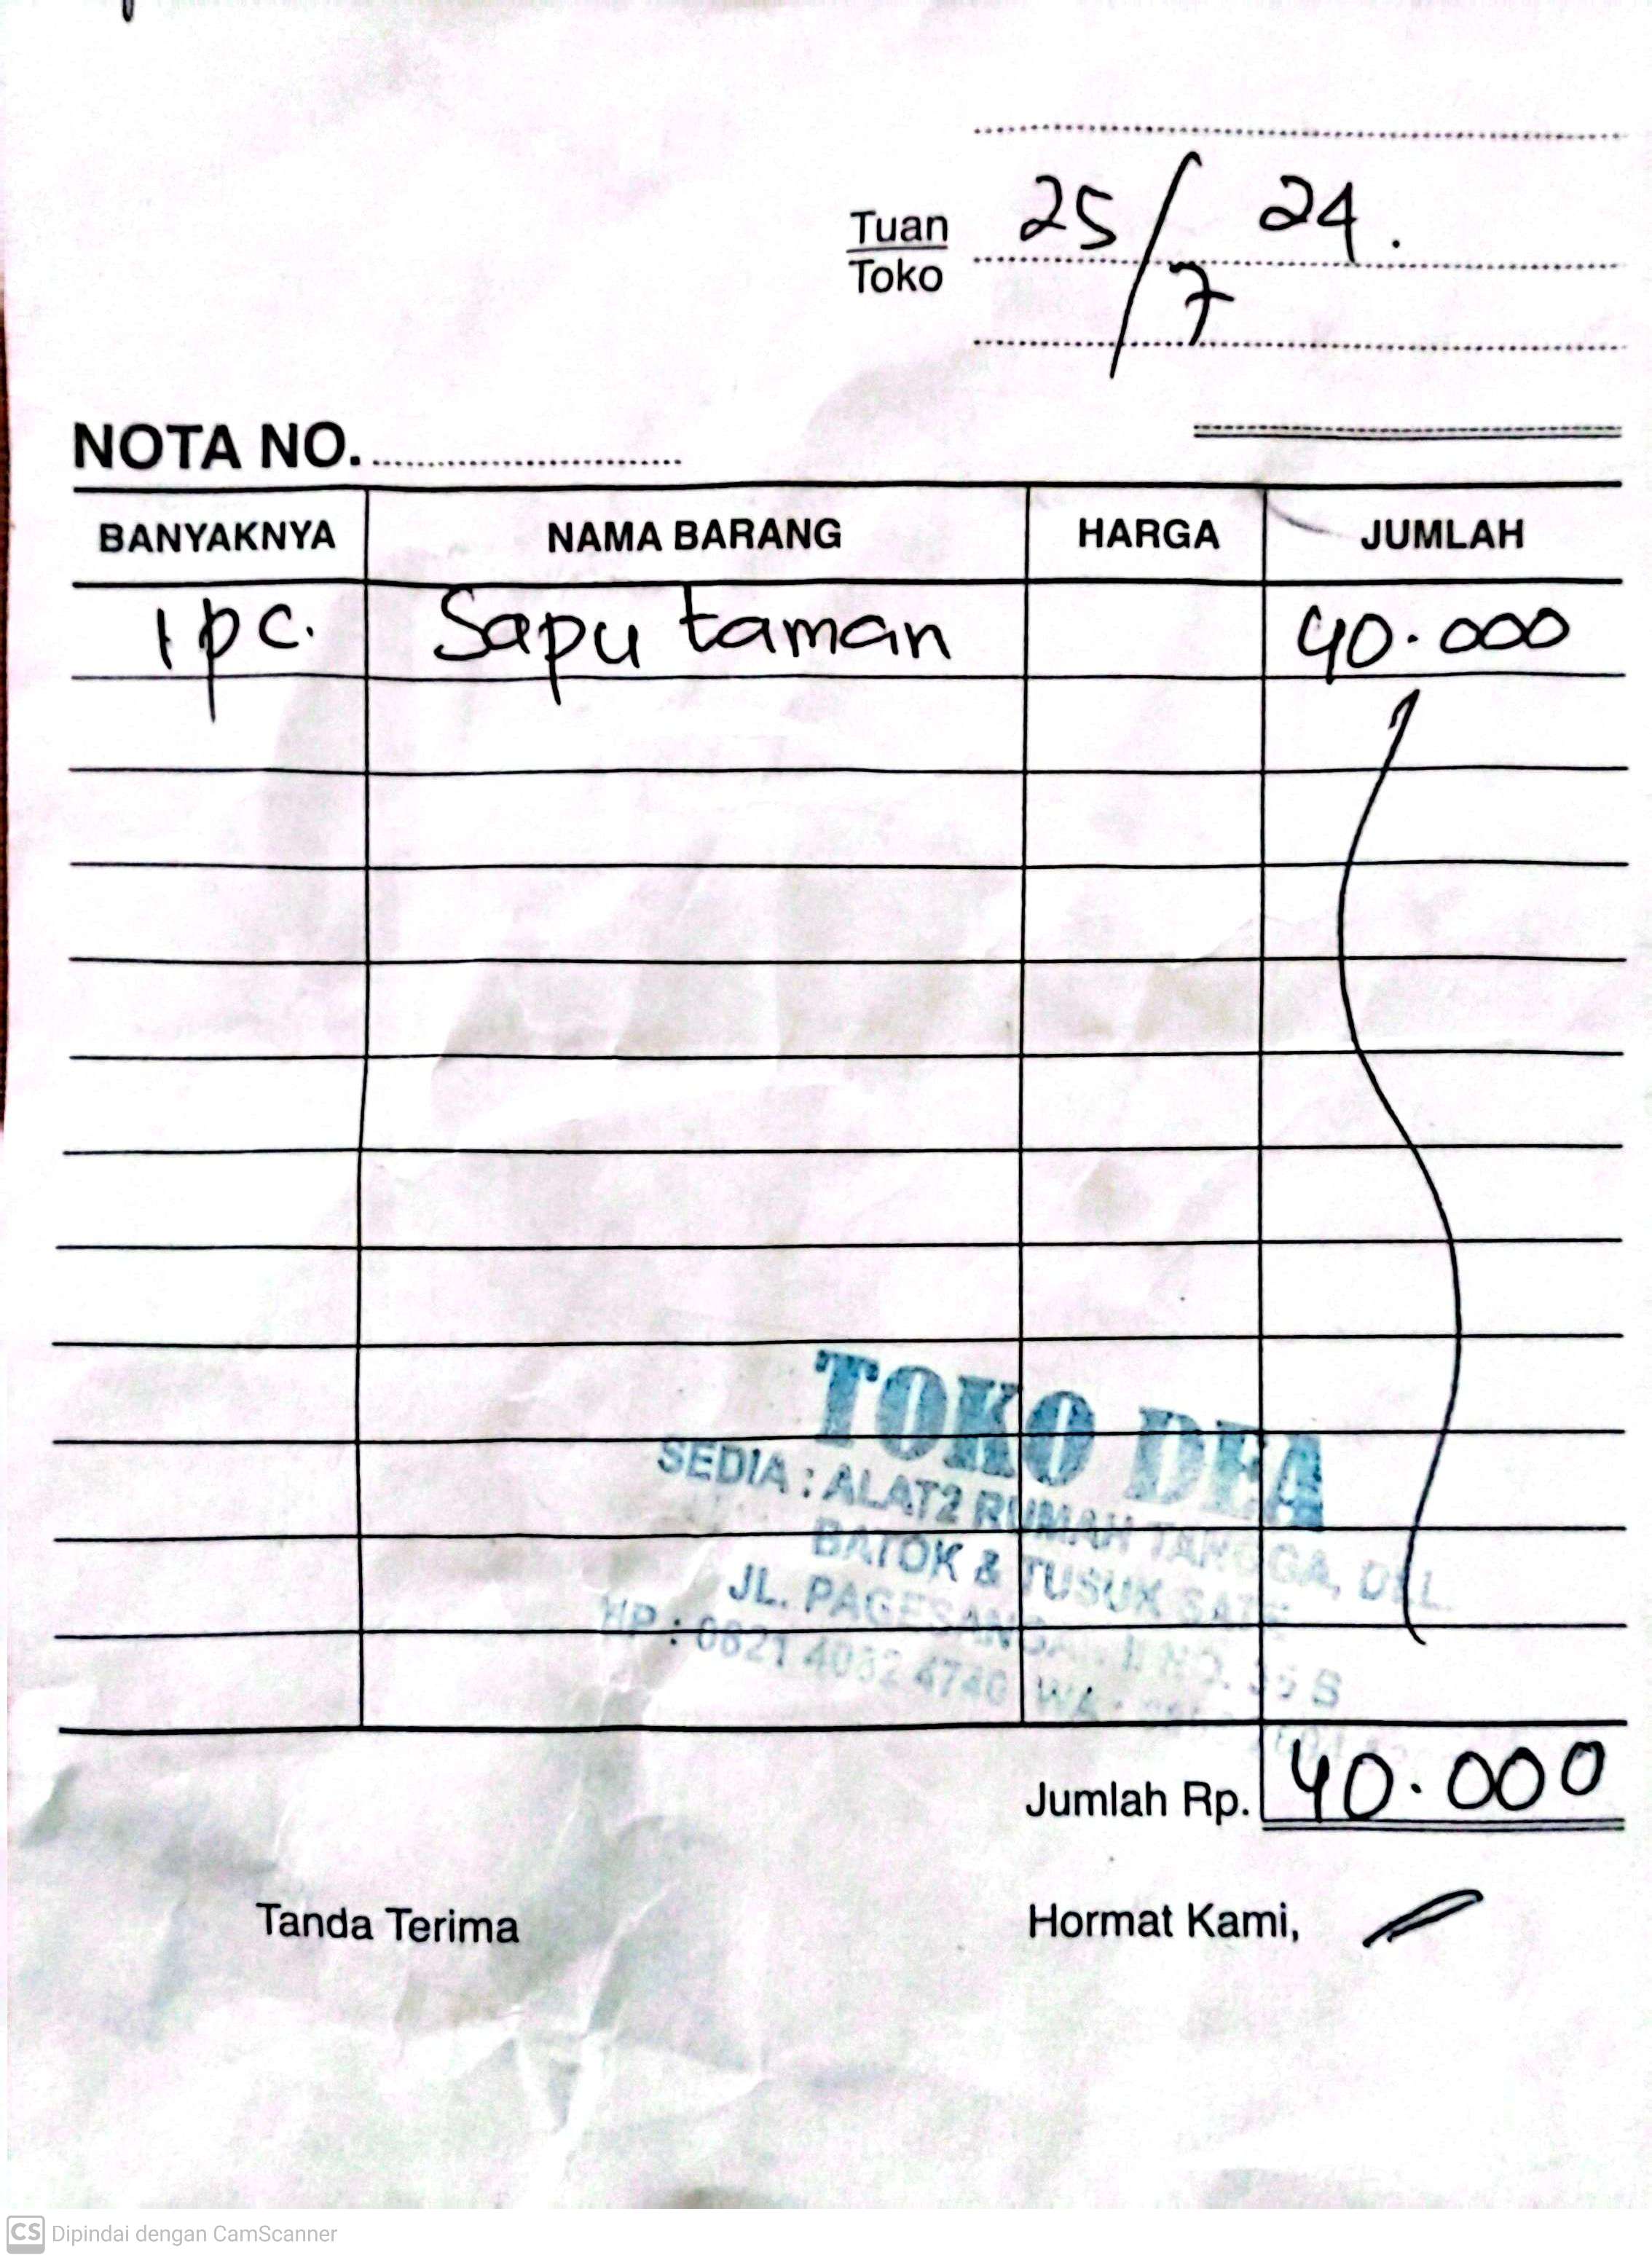 25/7 24.
Tuan
Toko
NOTA NO.
BANYAKNYA NAMA BARANG HARGA JUMLAH
1 pc. Sapu taman 40.000
TOKO DEA
SEDIA : ALAT2 RUMAH TANGGA, DLL.
BATOK & TUSUK SATE
JL. PAGESANGAN
HP : 0821 WA :
Jumlah Rp. 40.000
Tanda Terima Hormat Kami,
CS Dipindai dengan CamScanner